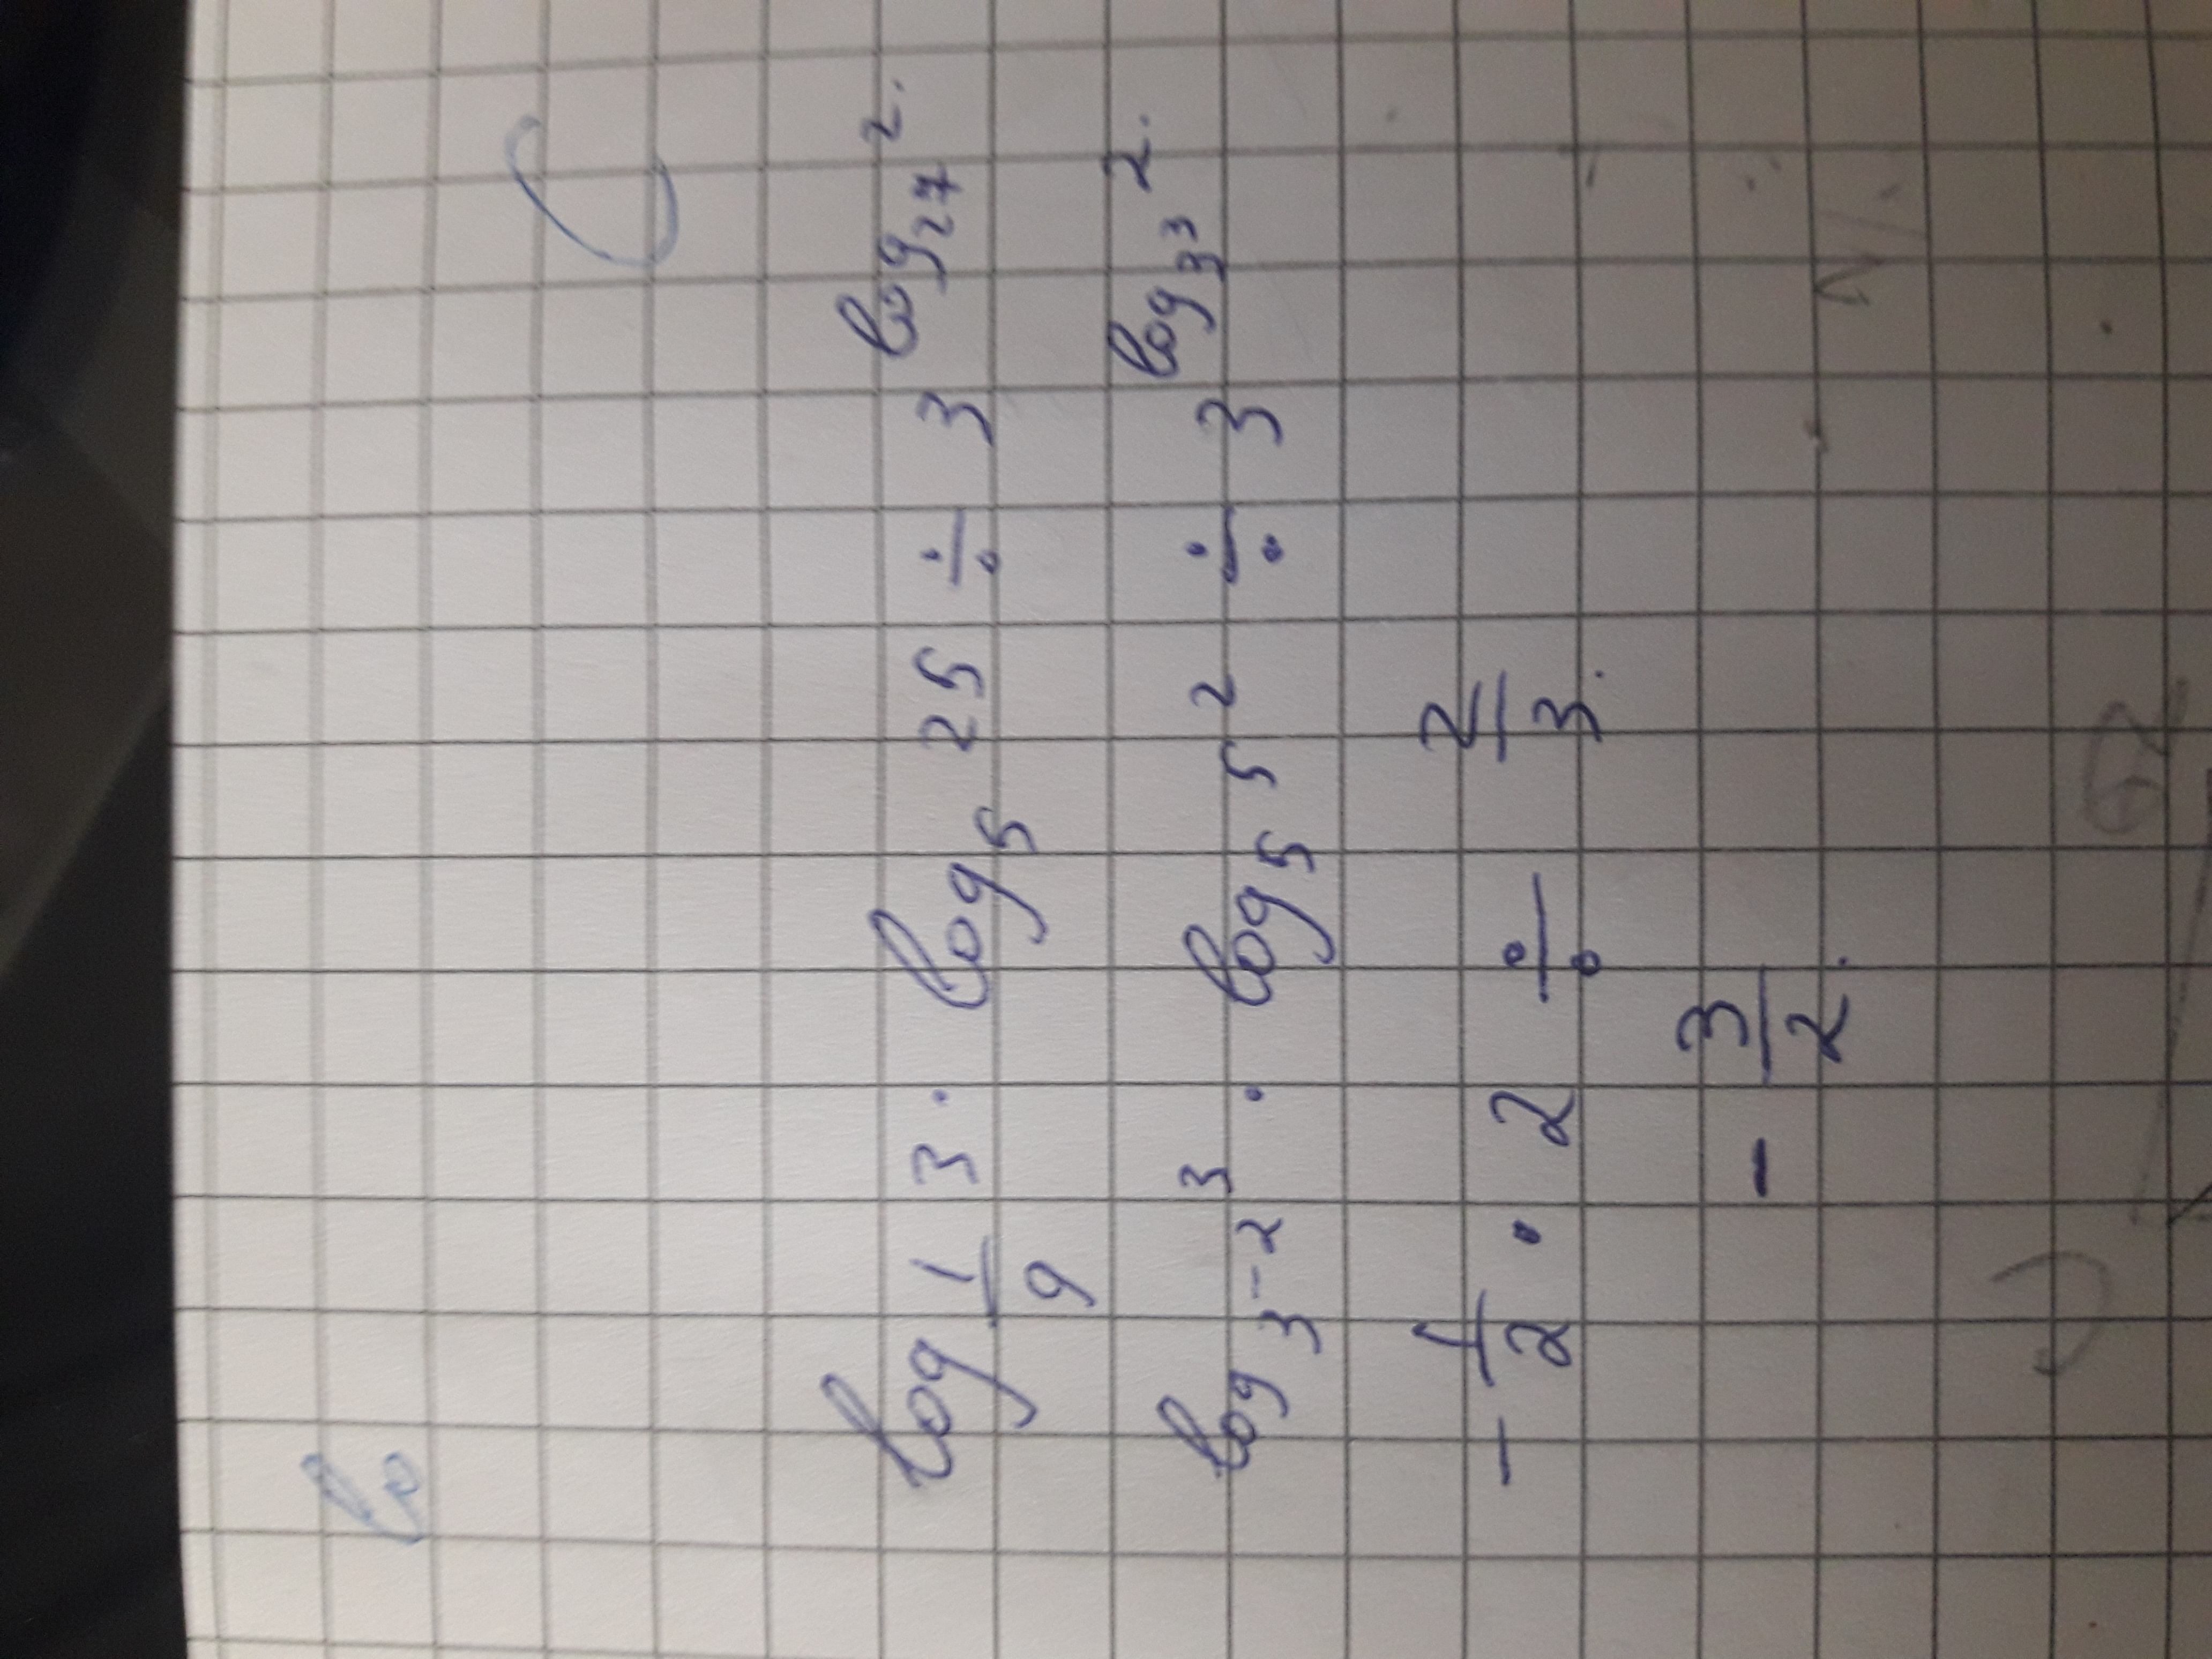 log 1/9 3 · log 5 25 ÷ 3 log 27 2.
log 3⁻² 3 · log 5 5² ÷ 3 log 3³ 2.
- 1/2 · 2 ÷ 2/3.
- 3/2.